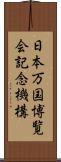 日本万国博覧
会記念機構